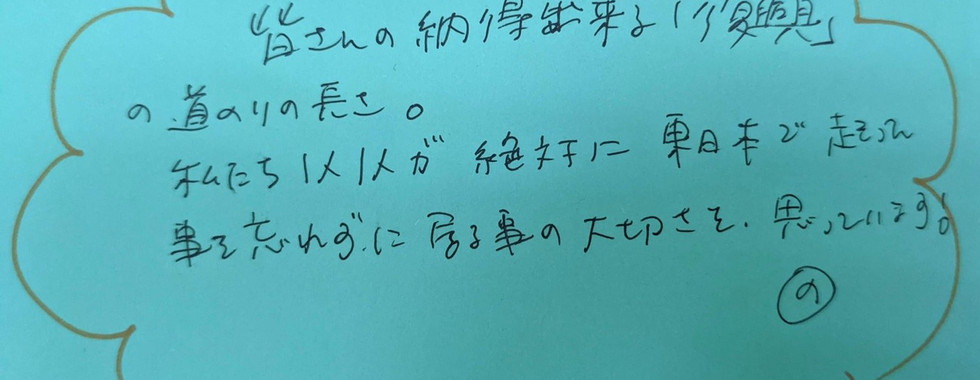 皆さんの納得出来る「復興」
の道のりの長さ。
私たち以外が絶対に東日本で起った
事を忘れずに居る事の大切さを、思っています。
の